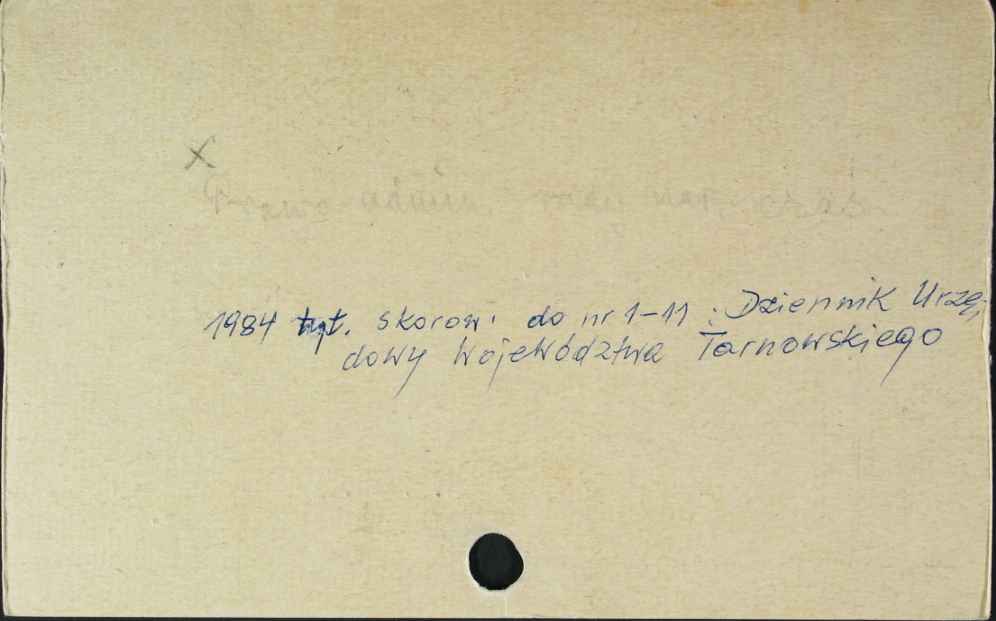 x
1984 tyt. skorow. do nr 1-11 : Dziennik Urzę-
dowy Województwa Tarnowskiego